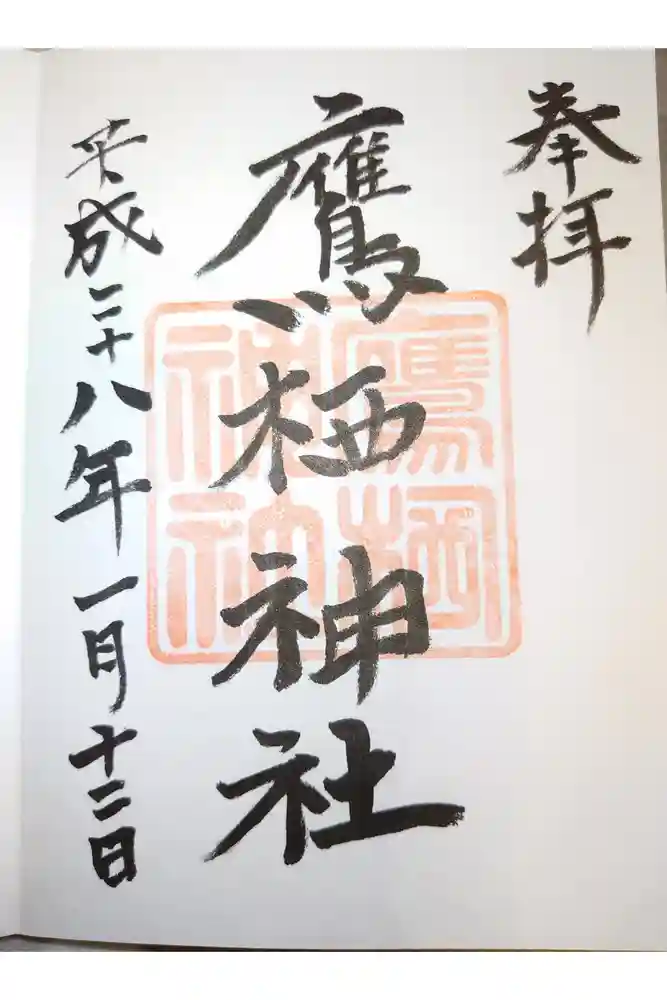 奉拝
鷹栖神社
平成二十八年一月十二日
鷹栖
神社